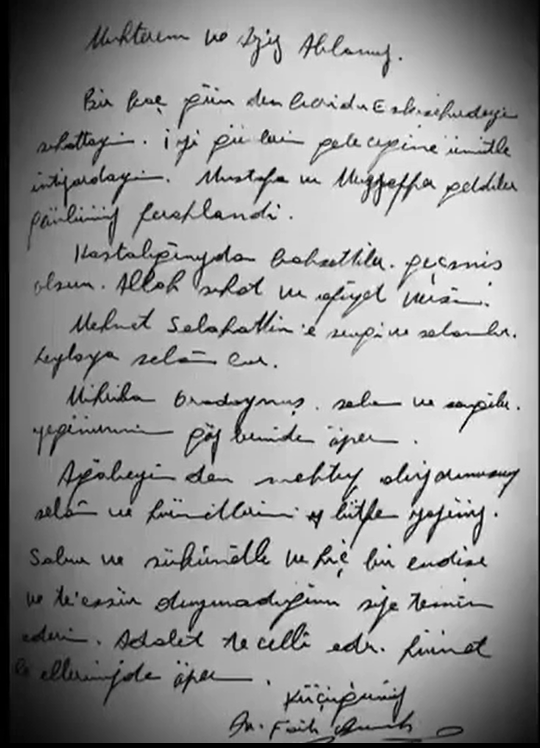 Muhterem ve Aziz Ablamız,
Bir kaç gün den beridir Eskişehirdeyim
sıhattayım. iyi günlerin geleceğine ümitle
intizardayım. Mustafa ve Muzaffer geldiler
gönlümüz ferahlandi.
Hastalığınızdan bahsettiler. geçmiş
olsun. Allah sıhat ve afiyet versin.
Mehmet Selahattin'e sevgi ve selamlar.
Leylaya selâm
Mihriban oradaymış. selam ve saygılar.
yeğenimin göz lerinden öperim.
Ağabeyim den mektup alıyormusunuz
selâm ve hürmetlerimi lütfen yazınız.
Sabır ve sükünetle ve hiç bir endişe
ve te'essür duymadığımı size temin
ederim. Adalet tecelli eder. hürmet
le ellerinizden öperim.
Küçüğünüz